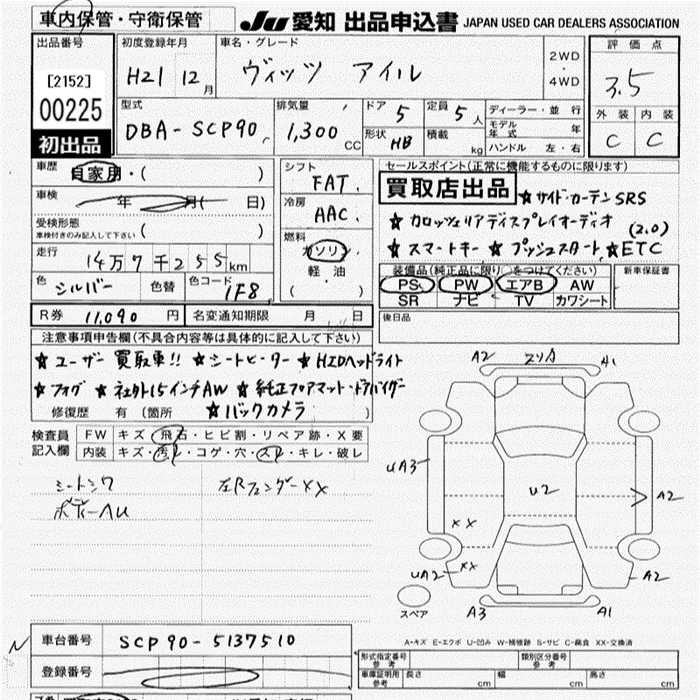 車内保管・守衛保管
JU 愛知 出品申込書 JAPAN USED CAR DEALERS ASSOCIATION
出品番号
[2152]
00225
初出品
初度登録年月
H21 12月
車名・グレード
ヴィッツ アイル
2WD
・
4WD
評価点
3.5
外装 内装
C C
型式
DBA-SCP90
排気量
1,300 CC
ドア 5
形状 HB
定員 5人
積載 kg
ディーラー・並行
モデル年式 年
ハンドル 左・右
車歴
自家用・( )
車検
年 月( 日)
受検形態
車検付きのみ記入して下さい ( )
走行
14万7千255km
色 シルバー 色替 色コード 1F8
シフト
FAT
冷房
AAC
燃料
ガソリン
軽油
セールスポイント(正常に機能するものに限ります)
買取店出品 ★サイドカーテンSRS
★カロッツェリアディスプレイオーディオ
★スマートキー ★プッシュスタート ★ETC (2.0)
装備品(純正品に限り○をつけてください)
PS PW エアB AW
SR ナビ TV カワシート
新車保証書
後日品
R券 11,090 円 名変通知期限 月 日
注意事項申告欄(不具合内容等は具体的に記入して下さい)
★ユーザー買取車!! ★シートヒーター ★HIDヘッドライト
★フォグ ★社外15インチAW ★純正フロアマット・ドアバイザー
★バックカメラ
修復歴 有(箇所 )
検査員記入欄
FW キズ・飛石・ヒビ割・リペア跡・X要
内装 キズ・汚レ・コゲ・穴・スレ・キレ・破レ
左Rフェンダー××
A2 A1
UA3
U2
A2
××
UA2 ××
A2
スペア
A3 A1
A-キズ E-エクボ U-凹み W-補修跡 S-サビ C-腐食 XX-交換済
車台番号 SCP90-5137510
登録番号
型式指定番号
参考
類別区分番号
参考
車庫証明用
参考
長さ cm 幅 cm 高さ cm